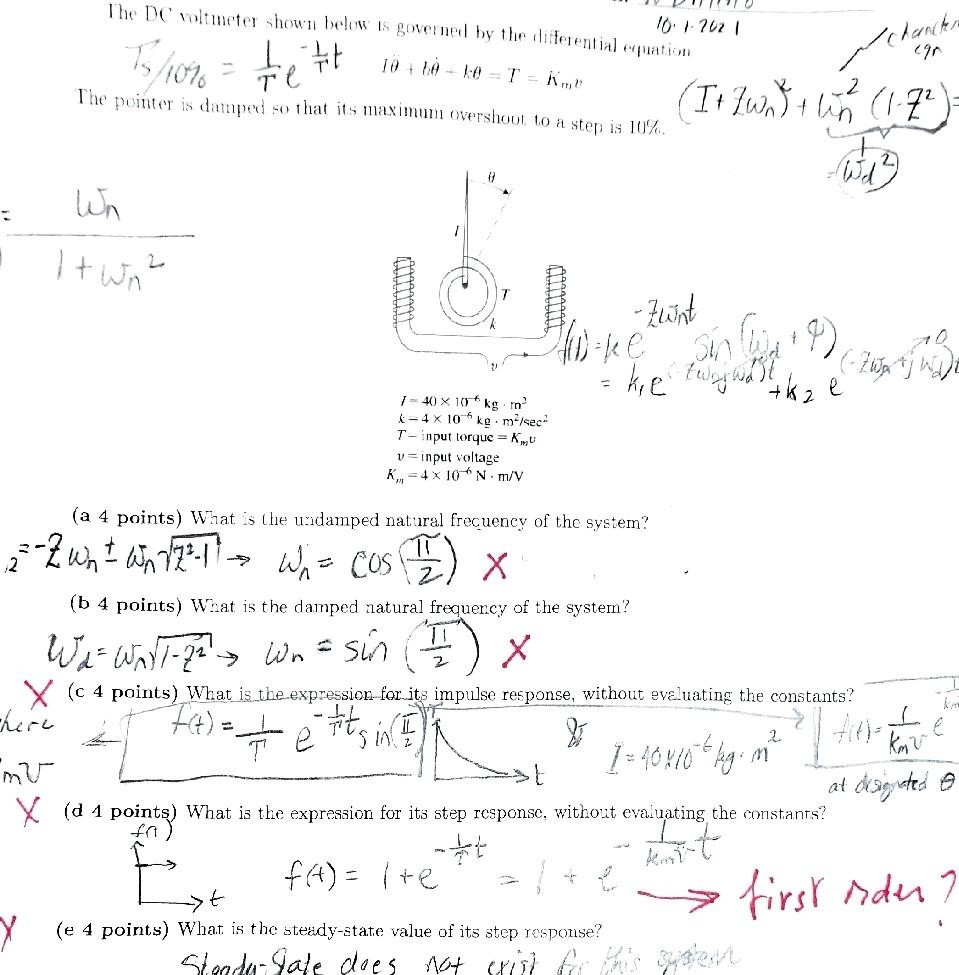 10·1·2021
The DC voltmeter shown below is governed by the differential equation
character
eqn
Ts/10% = 1/T e^-1/T t
Iθ̈ + bθ̇ + kθ = T = Kmv
(I + Zwn)² + wn² (1-Z²) =
The pointer is damped so that its maximum overshoot to a step is 10%.
= (wd²)
θ
= wn
1 + wn²
I
T
k
v
f(t) = k e^-Zwnt sin(wd + φ)
= k1 e^(-Zwn+jwd)t + k2 e^(-Zwn+jwd)t
0
I = 40 × 10⁻⁶ kg · m²
k = 4 × 10⁻⁶ kg · m²/sec²
T = input torque = Kmv
v = input voltage
Km = 4 × 10⁻⁶ N · m/V
(a 4 points) What is the undamped natural frequency of the system?
,2 = -Zwn ± wn√Z²-1 → wn = cos(π/2) X
(b 4 points) What is the damped natural frequency of the system?
wd = wn√1-Z² → wn = sin(π/2) X
X (c 4 points) What is the expression for its impulse response, without evaluating the constants?
here
f(t) = 1/T e^-1/T t sin(π/2)
t
I = 40×10⁻⁶ kg·m²
f(t) = 1/kmv e
mv
at designated θ
X (d 4 points) What is the expression for its step response, without evaluating the constants?
f(t)
t
f(t) = 1 + e^-1/T t = 1 + e^-1/kmv t
→ first order?
X (e 4 points) What is the steady-state value of its step response?
Steady-State does not exist for this system